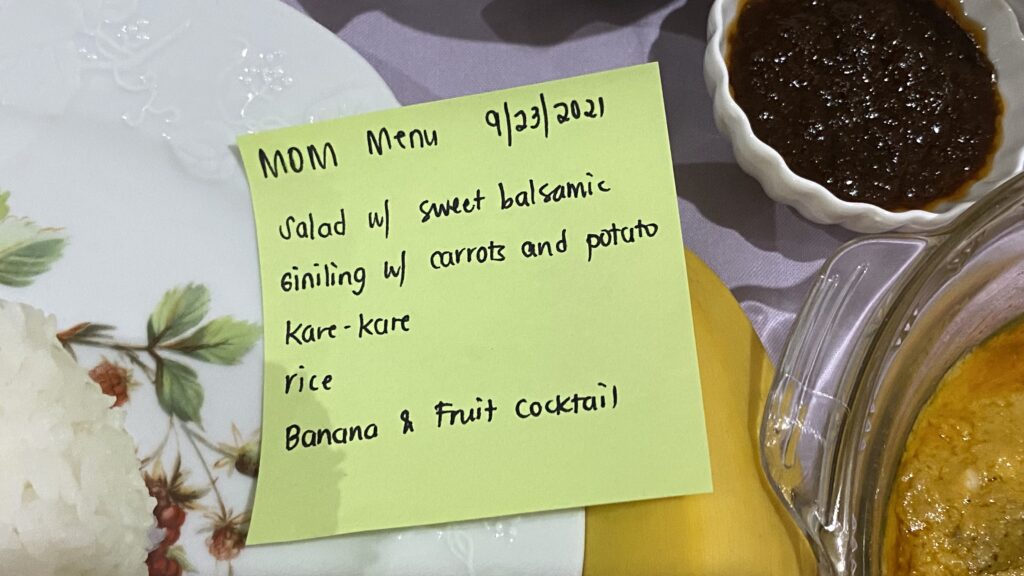 MOM Menu 9/23/2021
Salad w/ sweet balsamic
Giniling w/ carrots and potato
Kare-kare
rice
Banana & Fruit Cocktail